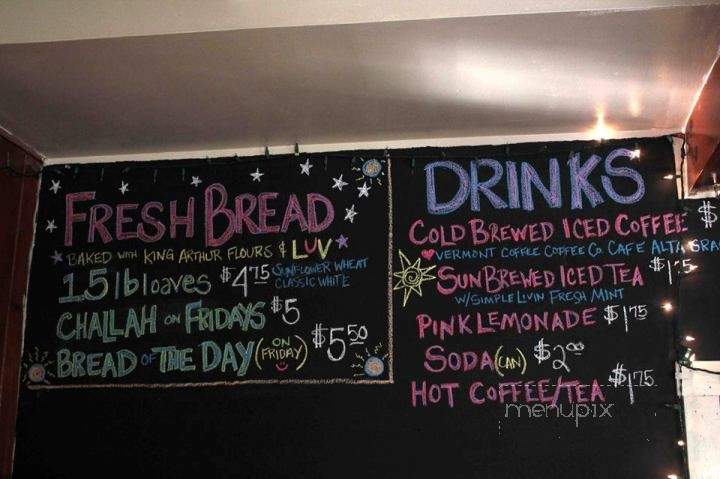 FRESH BREAD
BAKED WITH KING ARTHUR FLOURS & LUV
1.5 lb loaves $4.75 SUNFLOWER WHEAT
CLASSIC WHITE
CHALLAH ON FRIDAYS $5
BREAD OF THE DAY (ON FRIDAY) $5.50
DRINKS
COLD BREWED ICED COFFEE $
VERMONT COFFEE COFFEE CO. CAFE ALTA GRA
SUN BREWED ICED TEA $1.75
W/SIMPLE LIVIN FRESH MINT
PINK LEMONADE $1.75
SODA (CAN) $2.00
HOT COFFEE/TEA $1.75
menupix